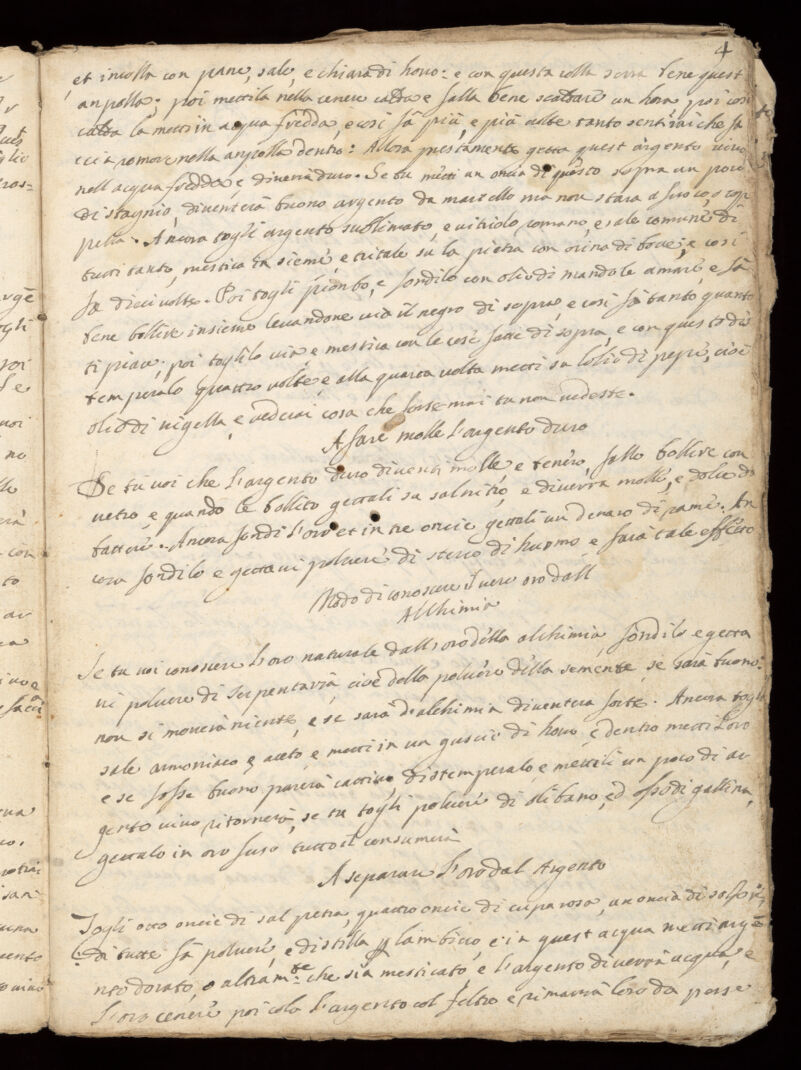 4
et incolla con pane, sale, e chiara di hovo: e con questa colla serra bene quest
anpolla; poi mettila nella cenere calda e falla bene scaldare un hora, poi così
calda la metti in acqua fredda, e così fà più, e più volte tanto sentirai che fa
ccia romore nella anpolla dentro: Allora prestamente getta quest argento vivo
nell acqua fredda e diverrà duro. Se tu metti un oncia di questo sopra un poco
di stagnio, diventerà buono argento da martello ma non starà a fuoco, o cop
pella. Ancora togli argento sublimato, e vitriolo romano, e sale comune di
tutti tanto, mestica in sieme, e tritale sù la pietra con orina di bove, e così
fà dieci volte. Poi togli piombo, e fondilo con olio di mandole amare, e fà
bene bollire insieme levandone via il negro di sopra, e così fà tanto quanto
ti piace; poi toglilo via, e mestica con le cose fatte di sopra, e con questo di
temperalo quattro volte, e alla quarta volta metti sù l'olio di pepe, cioè
olio di nigella, e vederai cosa che forse mai tu non vedeste.
A fare molle l'argento duro
Se tu voi che l'argento duro diventi molle, e tenero, fallo bollire con
vetro, e quando le bollito gettali sù salnitrio, e diverrà molle, e dolce da
battere. Ancora fondi l'oro et in tre oncie gettali un denaro di rame. An
cora fondilo e gettavi polvere di sterco di huomo e farà tale effetto
Modo di conoscere il vero oro dall
Alchimia
Se tu voi conoscere l'oro naturale dall'oro della alchimia, fondilo e getta
vi polvere di serpentaria, cioè della polvere della semente, se sarà buono
non si moverà niente, e se sarà d'alchimia diventerà forte. Ancora togli
sale armoniaco e aceto, e metti in un guscie di hovo, e dentro metti l'oro
e se fosse buono parerà cattivo distemperalo, e mettili un poco di ar
gento vivo ritornerà, se tu togli polvere di olibano, ed osso di gallina,
gettalo in oro fuso tutto il consumerà
A separare l'oro dal Argento
Togli otto oncie di sal petra, quattro oncie di cuparosa, un oncia di solforij
di tutte fà polvere, e distilla p lambicco, e in quest acqua metti argē
nto dorato, o altramte che sia mesticato, e l'argento diverrà acqua, e
l'oro cenere poi cola l'argento col feltro e rimarrà l'oro da perse